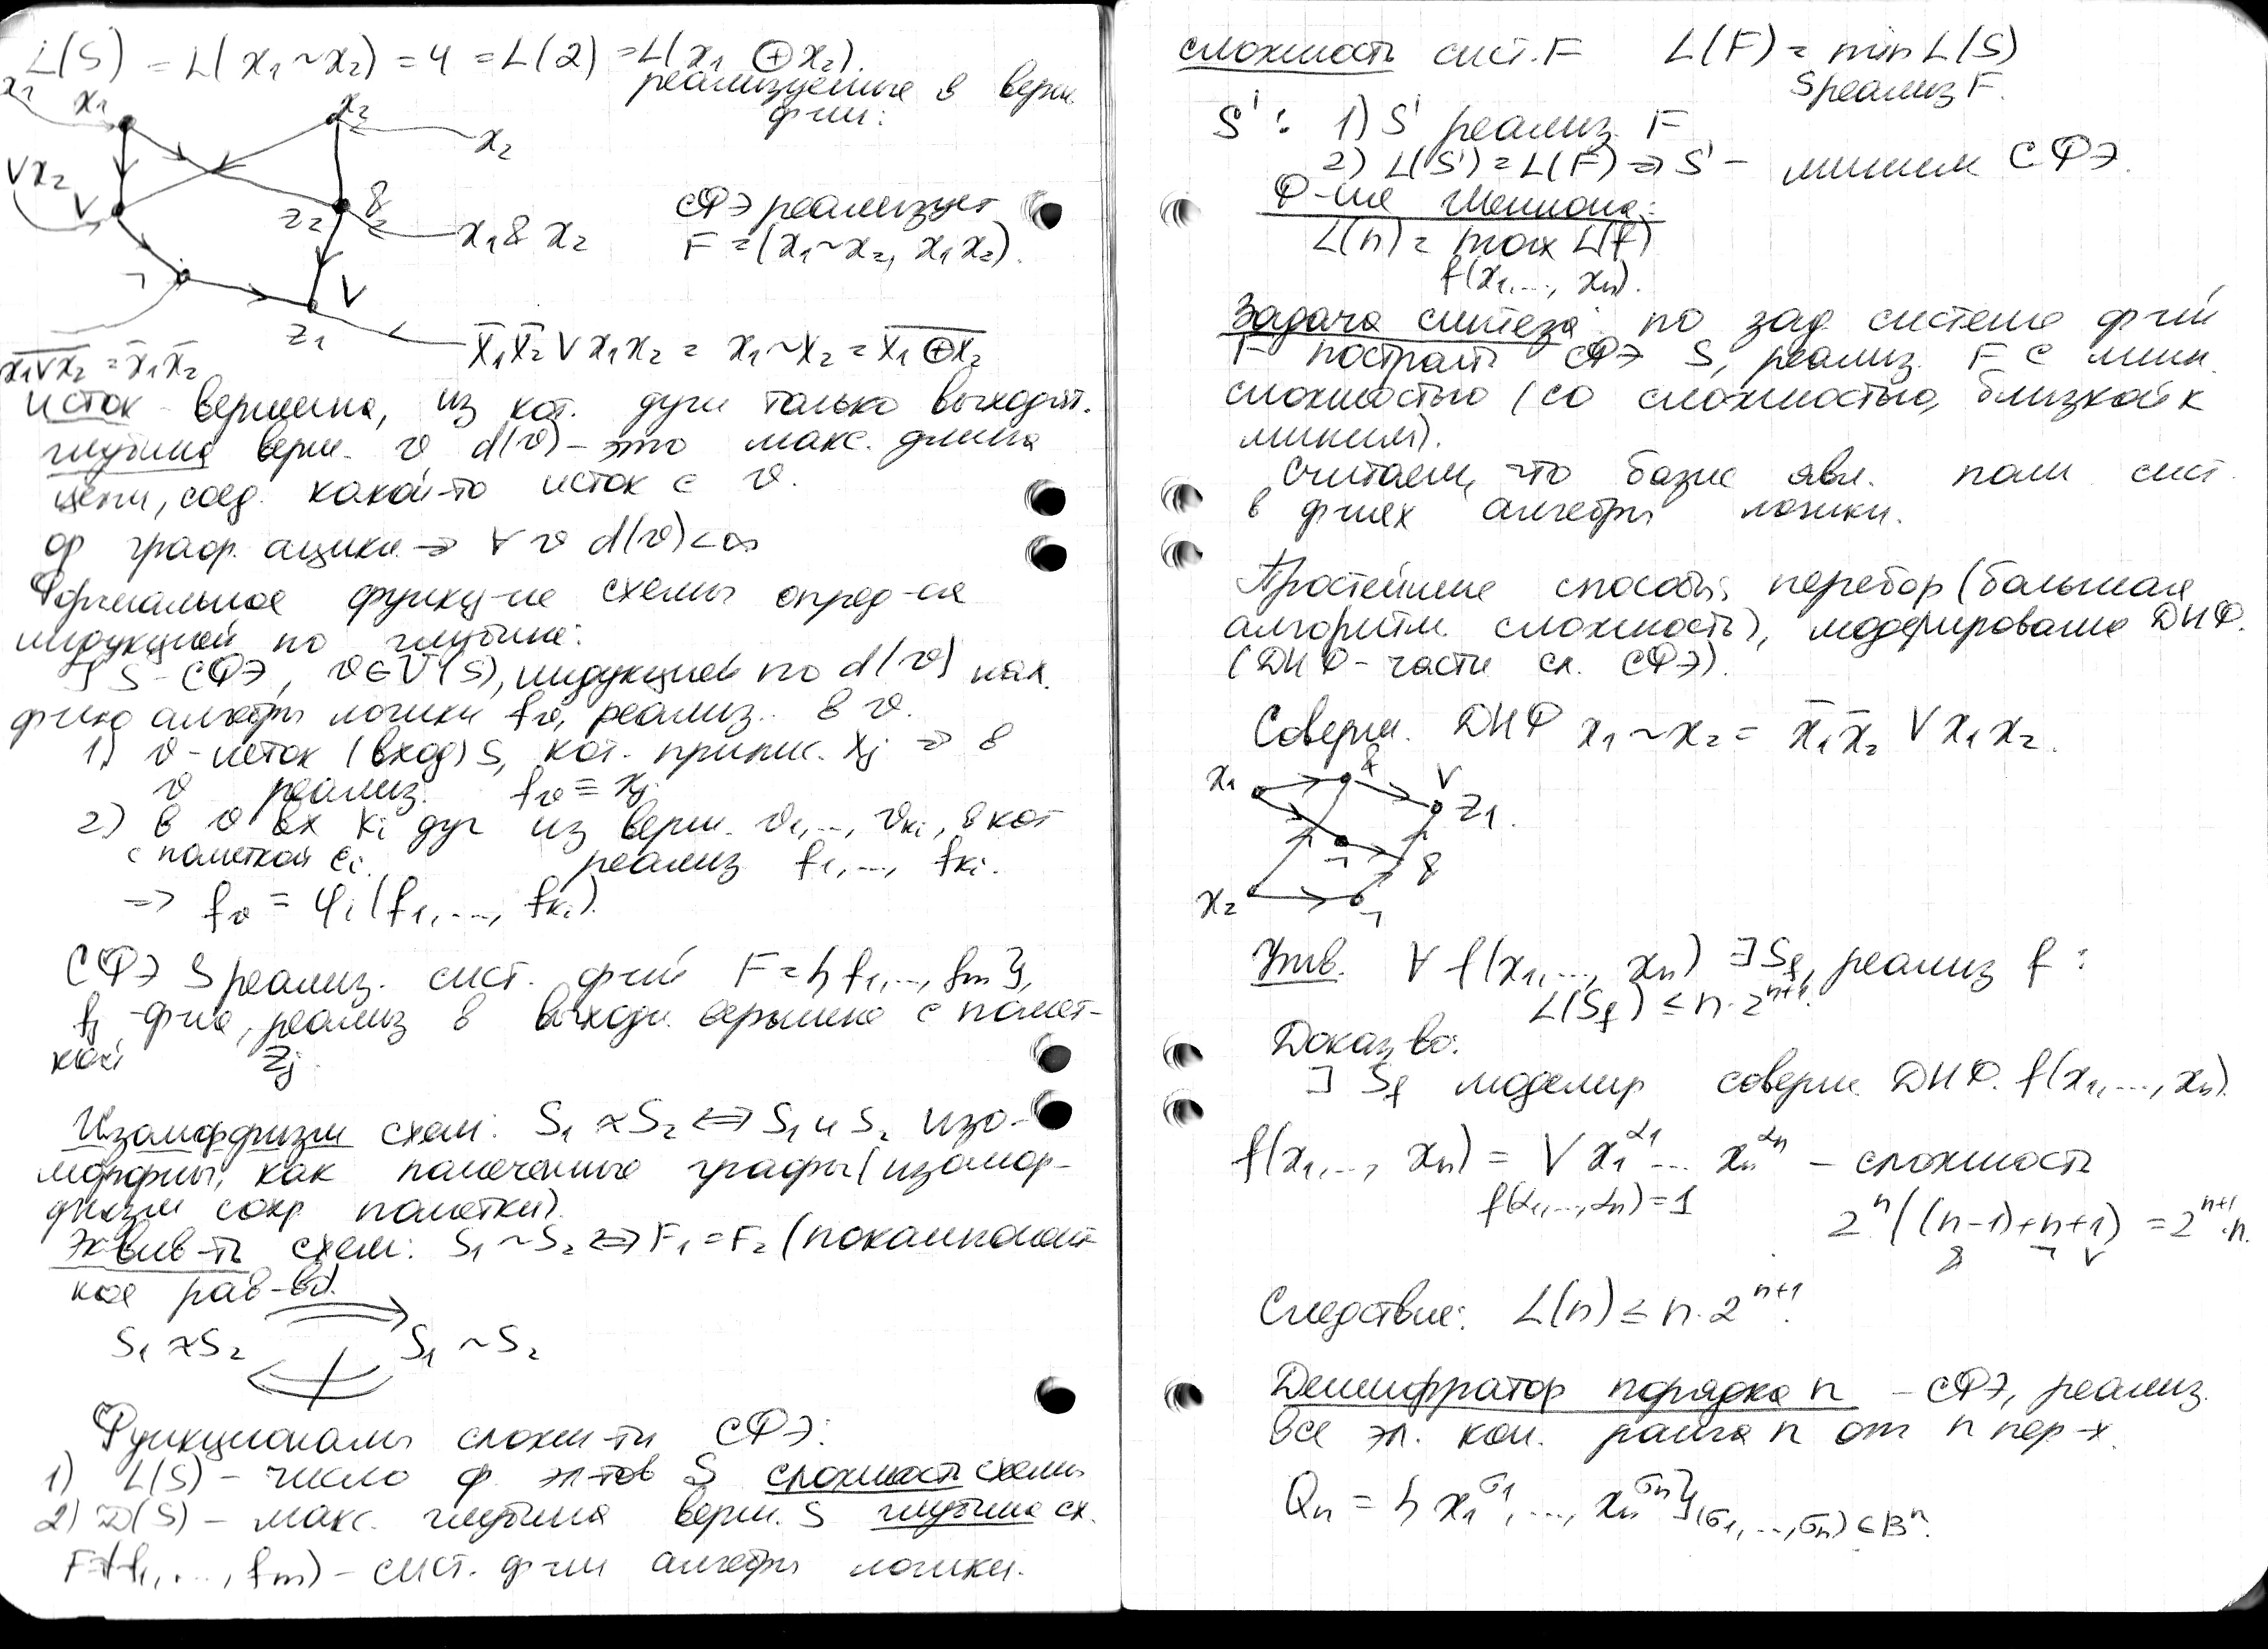 L(S) = L(x₁ ~ x₂) = 4 = L(2) = L(x₁ ⊕ x₂).
реализуемые в верш.
ф-ции:
x₁ x₁ x₂
x₂
∨x₂
∨ z₂ &
x₁ & x₂
СФЭ реализует
F = (x₁ ~ x₂, x₁x₂).
¬ ∨
z₁
x̅₁x̅₂ ∨ x₁x₂ = x₁ ~ x₂ = \overline{x₁ ⊕ x₂}
\overline{x₁ ∨ x₂} = x̅₁x̅₂
исток - вершина, из кот. дуги только выходят.
глубина верш. v d(v) - это макс. длина
цепи, соед. какой-то исток с v.
ор граф. ацикл. ⇒ ∀ v d(v) < ∞
Формальное функц-ие схемы опред-ся
индукцией по глубине:
] S - СФЭ, v ∈ V(S), индукцией по d(v) нах.
ф-цию алгебры логики f_v, реализ. в v.
1) v - исток (вход) S, кот. припис. x_j ⇒ в
v реализ. f_v ≡ x_j
2) в v вх k_i дуг из верш. v₁,..., v_{k_i}, в кот
с пометкой e_i. реализ f₁,..., f_{k_i}.
⇒ f_v = φ_i(f₁,..., f_{k_i}).
СФЭ S реализ. сист. ф-ций F = {f₁,..., f_m},
f_j - ф-ция, реализ в выходн. вершине с помет-
кой z_j.
Изоморфизм схем: S₁ ≈ S₂ ⇔ S₁ и S₂ изо-
морфны, как помеченные графы (изомор-
физм сохр. пометки).
Эквив-ть схем: S₁ ~ S₂ ⇔ F₁ = F₂ (покомпонент
ное рав-во).
S₁ ≈ S₂ S₁ ~ S₂
Функционалы сложн-ти СФЭ:
1) L(S) - число ф. эл-тов S сложность схемы
2) D(S) - макс. глубина верш. S глубина сх.
F = (f₁,..., f_m) - сист. ф-ции алгебры логики.
сложность сист. F L(F) = min L(S)
S реализ F.
S': 1) S' реализ. F
2) L(S') = L(F) ⇒ S' - миним СФЭ.
Ф-ия Шеннона:
L(n) = max L(f)
f(x₁,..., x_n).
Задача синтеза: по зад системе ф-ций
F построить СФЭ S, реализ. F с мин.
сложностью (со сложностью, близкой к
миним).
Считаем, что базис явл. полн сист.
в ф-циях алгебры логики.
Простейшие способы: перебор (большая
алгоритм. сложность), моделирование ДНФ.
(ДНФ - частн сл. СФЭ).
Соверш. ДНФ x₁ ~ x₂ = x̅₁x̅₂ ∨ x₁x₂.
x₁ & ∨
z₁.
¬ &
x₂ ¬
Утв. ∀ f(x₁,..., x_n) ∃ S_f, реализ f:
L(S_f) ≤ n · 2ⁿ⁺¹.
Доказ-во:
] S_f моделир соверш. ДНФ. f(x₁,..., x_n).
f(x₁,..., x_n) = ∨ x₁^{α₁} ... x_n^{α_n} - сложность
f(α₁,..., α_n) = 1
2ⁿ((n-1)+n+1) = 2ⁿ⁺¹ · n.
& ¬ ∨
Следствие: L(n) ≤ n · 2ⁿ⁺¹.
Дешифратор порядка n - СФЭ, реализ.
все эл. кон. ранга n от n пер-х.
Q_n = {x₁^{σ₁},..., x_n^{σ_n}}_{(σ₁,..., σ_n) ∈ Bⁿ}.